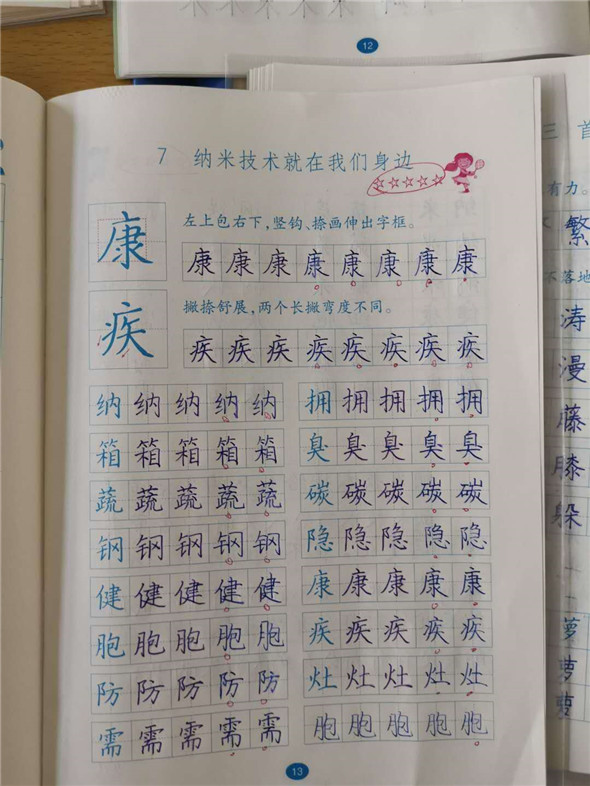 12
7 纳米技术就在我们身边
康 左上包右下,竖钩、捺画伸出字框。
康康康康康康康康
疾 撇捺舒展,两个长撇弯度不同。
疾疾疾疾疾疾疾疾
纳纳纳纳纳 拥拥拥拥拥
箱箱箱箱箱 臭臭臭臭臭
蔬蔬蔬蔬蔬 碳碳碳碳碳
钢钢钢钢钢 隐隐隐隐隐
健健健健健 康康康康康
胞胞胞胞胞 疾疾疾疾疾
防防防防防 灶灶灶灶灶
需需需需需 胞胞胞胞胞
13
三 首
有力。
繁
不落地
涛
漫
藤
膝
躲
萝
萝
萝